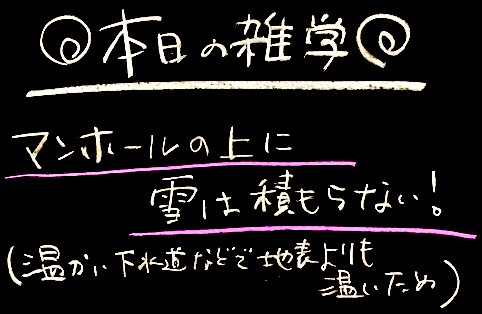 本日の雑学
マンホールの上に
雪は積もらない!
(温かい下水道などで地表よりも
温いため)